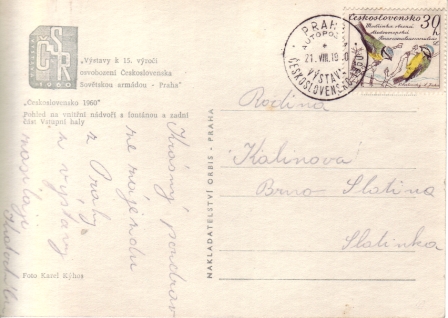 ČSR
1960
„Výstavy k 15. výročí
osvobození Československa
Sovětskou armádou - Praha“
„Československo 1960“
Pohled na vnitřní nádvoří s fontánou a zadní
část Vstupní haly
Krásný pozdrav
z Prahy
z výstavy
Foto Karel Kýhos
NAKLADATELSTVÍ ORBIS - PRAHA
PRAHA
AUTOPOŠTA
21. VIII. 19
VÝSTAVA
ČESKOSLOVENSKO 1960
Československo
30h
Rodina
Kalinova
Brno Slatina
Slatinka